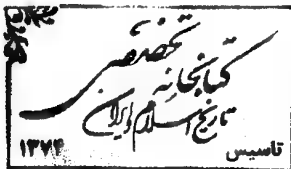 کتابخانه تخصصی
تاریخ اسلام و ایران
تاسیس ۱۳۷۴